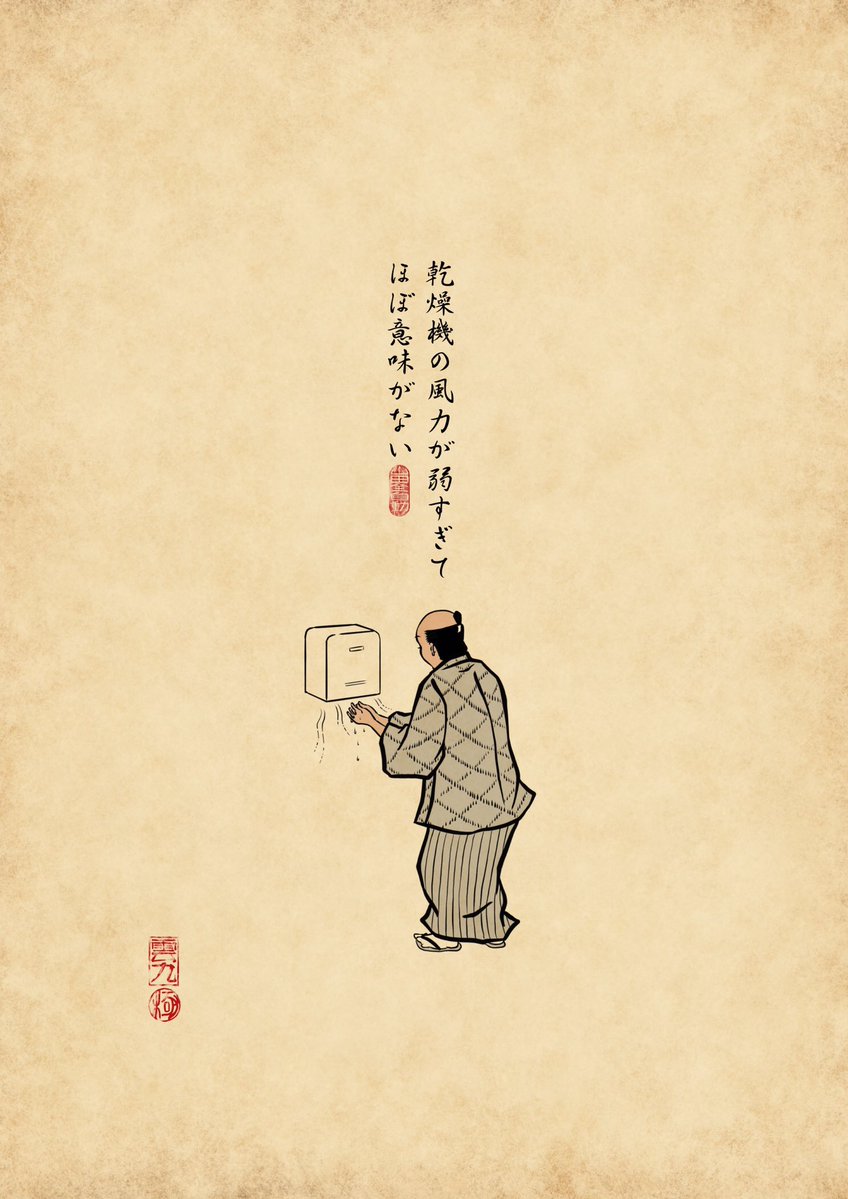 乾燥機の風力が弱すぎて
ほぼ意味がない